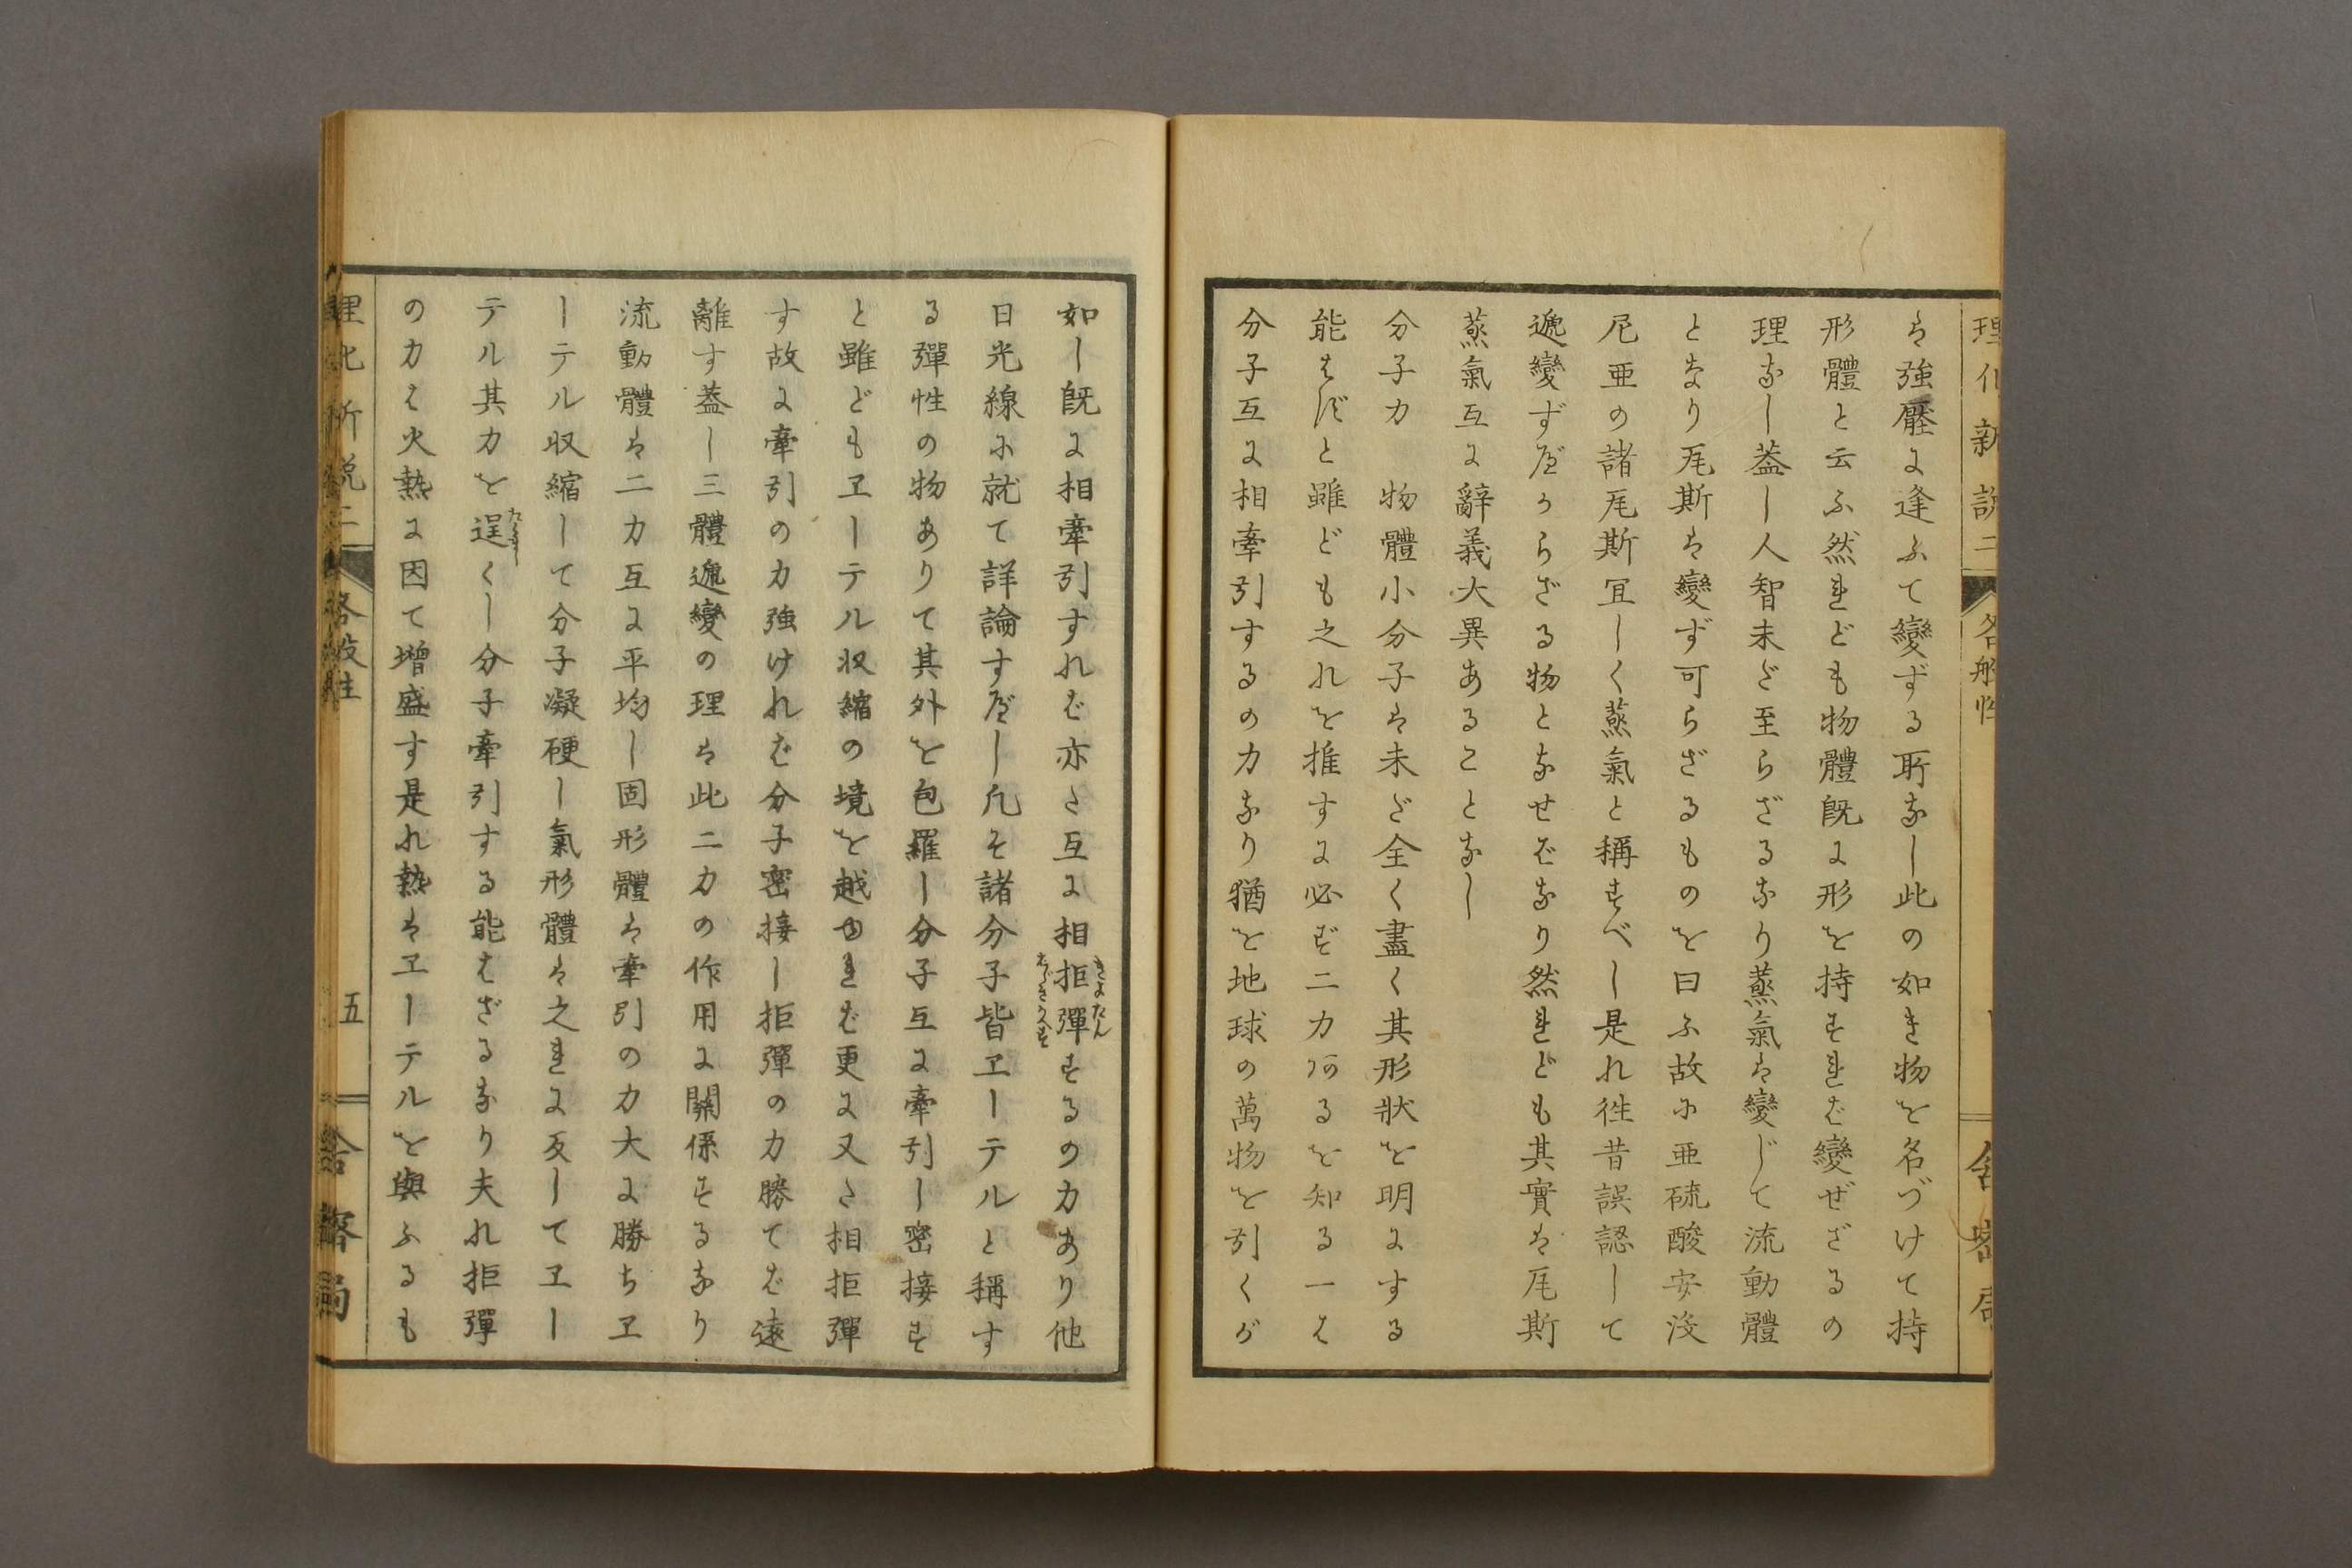 理化新説二 各般性 舎密局
は強壓に逢ふて變ずる所なし此の如き物を名づけて持
形體と云ふ然れども物體既に形を持すれば變ぜざるの
理なし蓋し人智未だ至らざるなり蒸氣は變じて流動體
となり瓦斯は變ず可らざるものを曰ふ故に亜硫酸安没
尼亜の諸瓦斯冝しく蒸氣と稱すべし是れ徃昔誤認して
遞變ず可からざる物となせばなり然れども其實は瓦斯
蒸氣互に辭義大異あることなし
分子力 物體小分子は未だ全く盡く其形状を明にする
能はずと雖ども之れを推すに必ず二力ある を知る一は
分子互に相牽引するの力なり猶を地球の萬物を引くが
如し既に相牽引すれば亦た互に相拒彈するの力あり他
日光線に就て詳論す可し凡そ諸分子皆エーテルと稱す
る彈性の物ありて其外を包羅し分子互に牽引し密接す
と雖どもエーテル収縮の境を越ゆれば更に又た相拒彈
す故に牽引の力強ければ分子密接し拒彈の力勝てば遠
離す蓋し三體遞變の理は此二力の作用に關係するなり
流動體は二力互に平均し固形體は牽引の力大に勝ちエ
ーテル収縮して分子凝硬し氣形體は之れに反してエー
テル其力を逞くし分子牽引する能はざるなり夫れ拒彈
の力は火熱に因て増盛す是れ熱はエーテルを與ふるも
理化新説二 各般性 五 舎密局